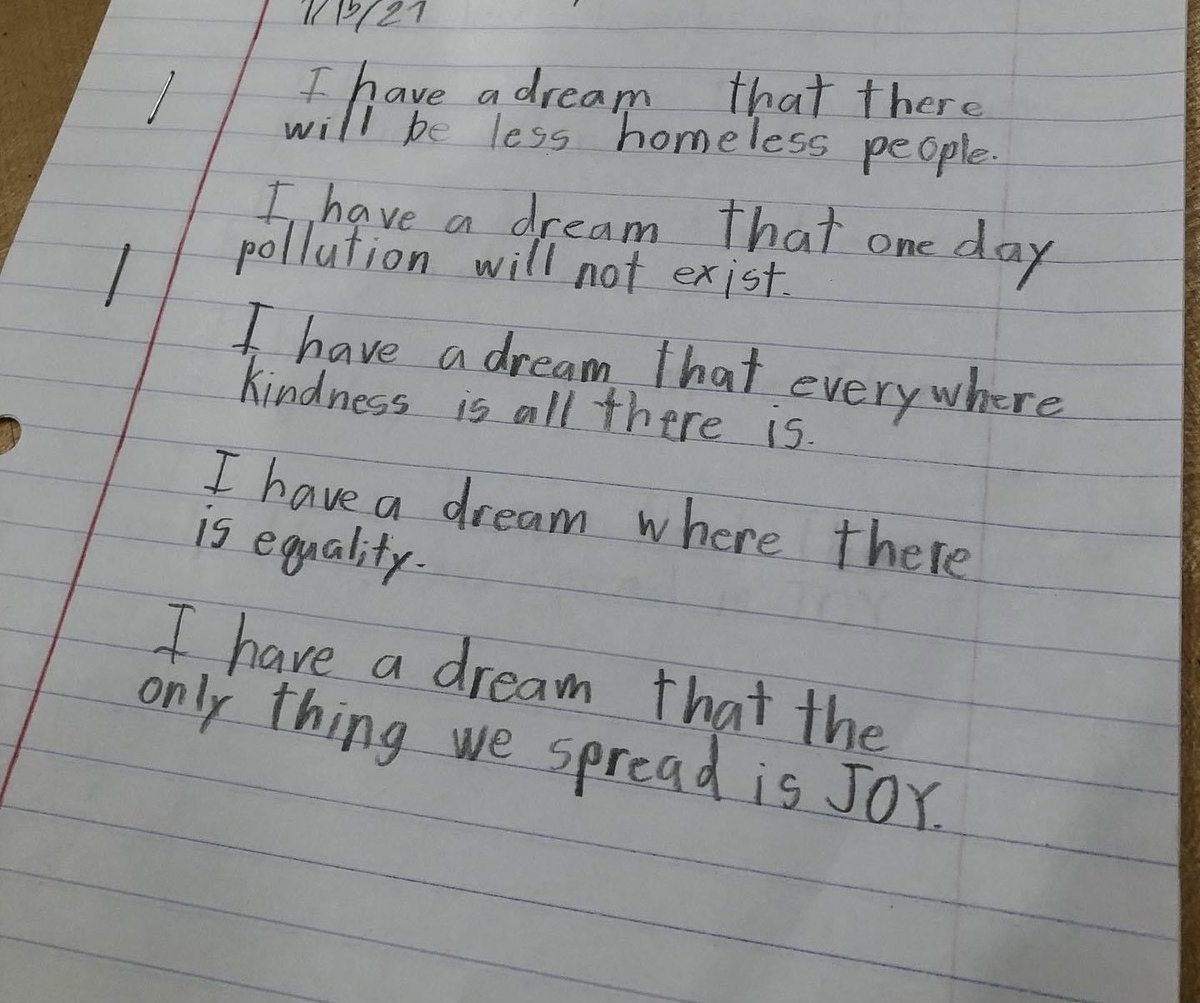 1/15/21
I have a dream that there
will be less homeless people.
I have a dream that one day
pollution will not exist.
I have a dream that everywhere
kindness is all there is.
I have a dream where there
is equality.
I have a dream that the
only thing we spread is JOY.